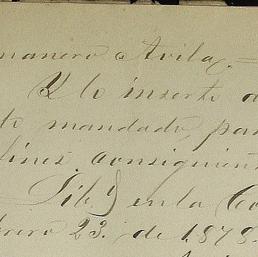 manero Avila.=
Y lo inserto a
to mandado, par
fines consiguien
Lib) en la Co
brero 23. de 1878.